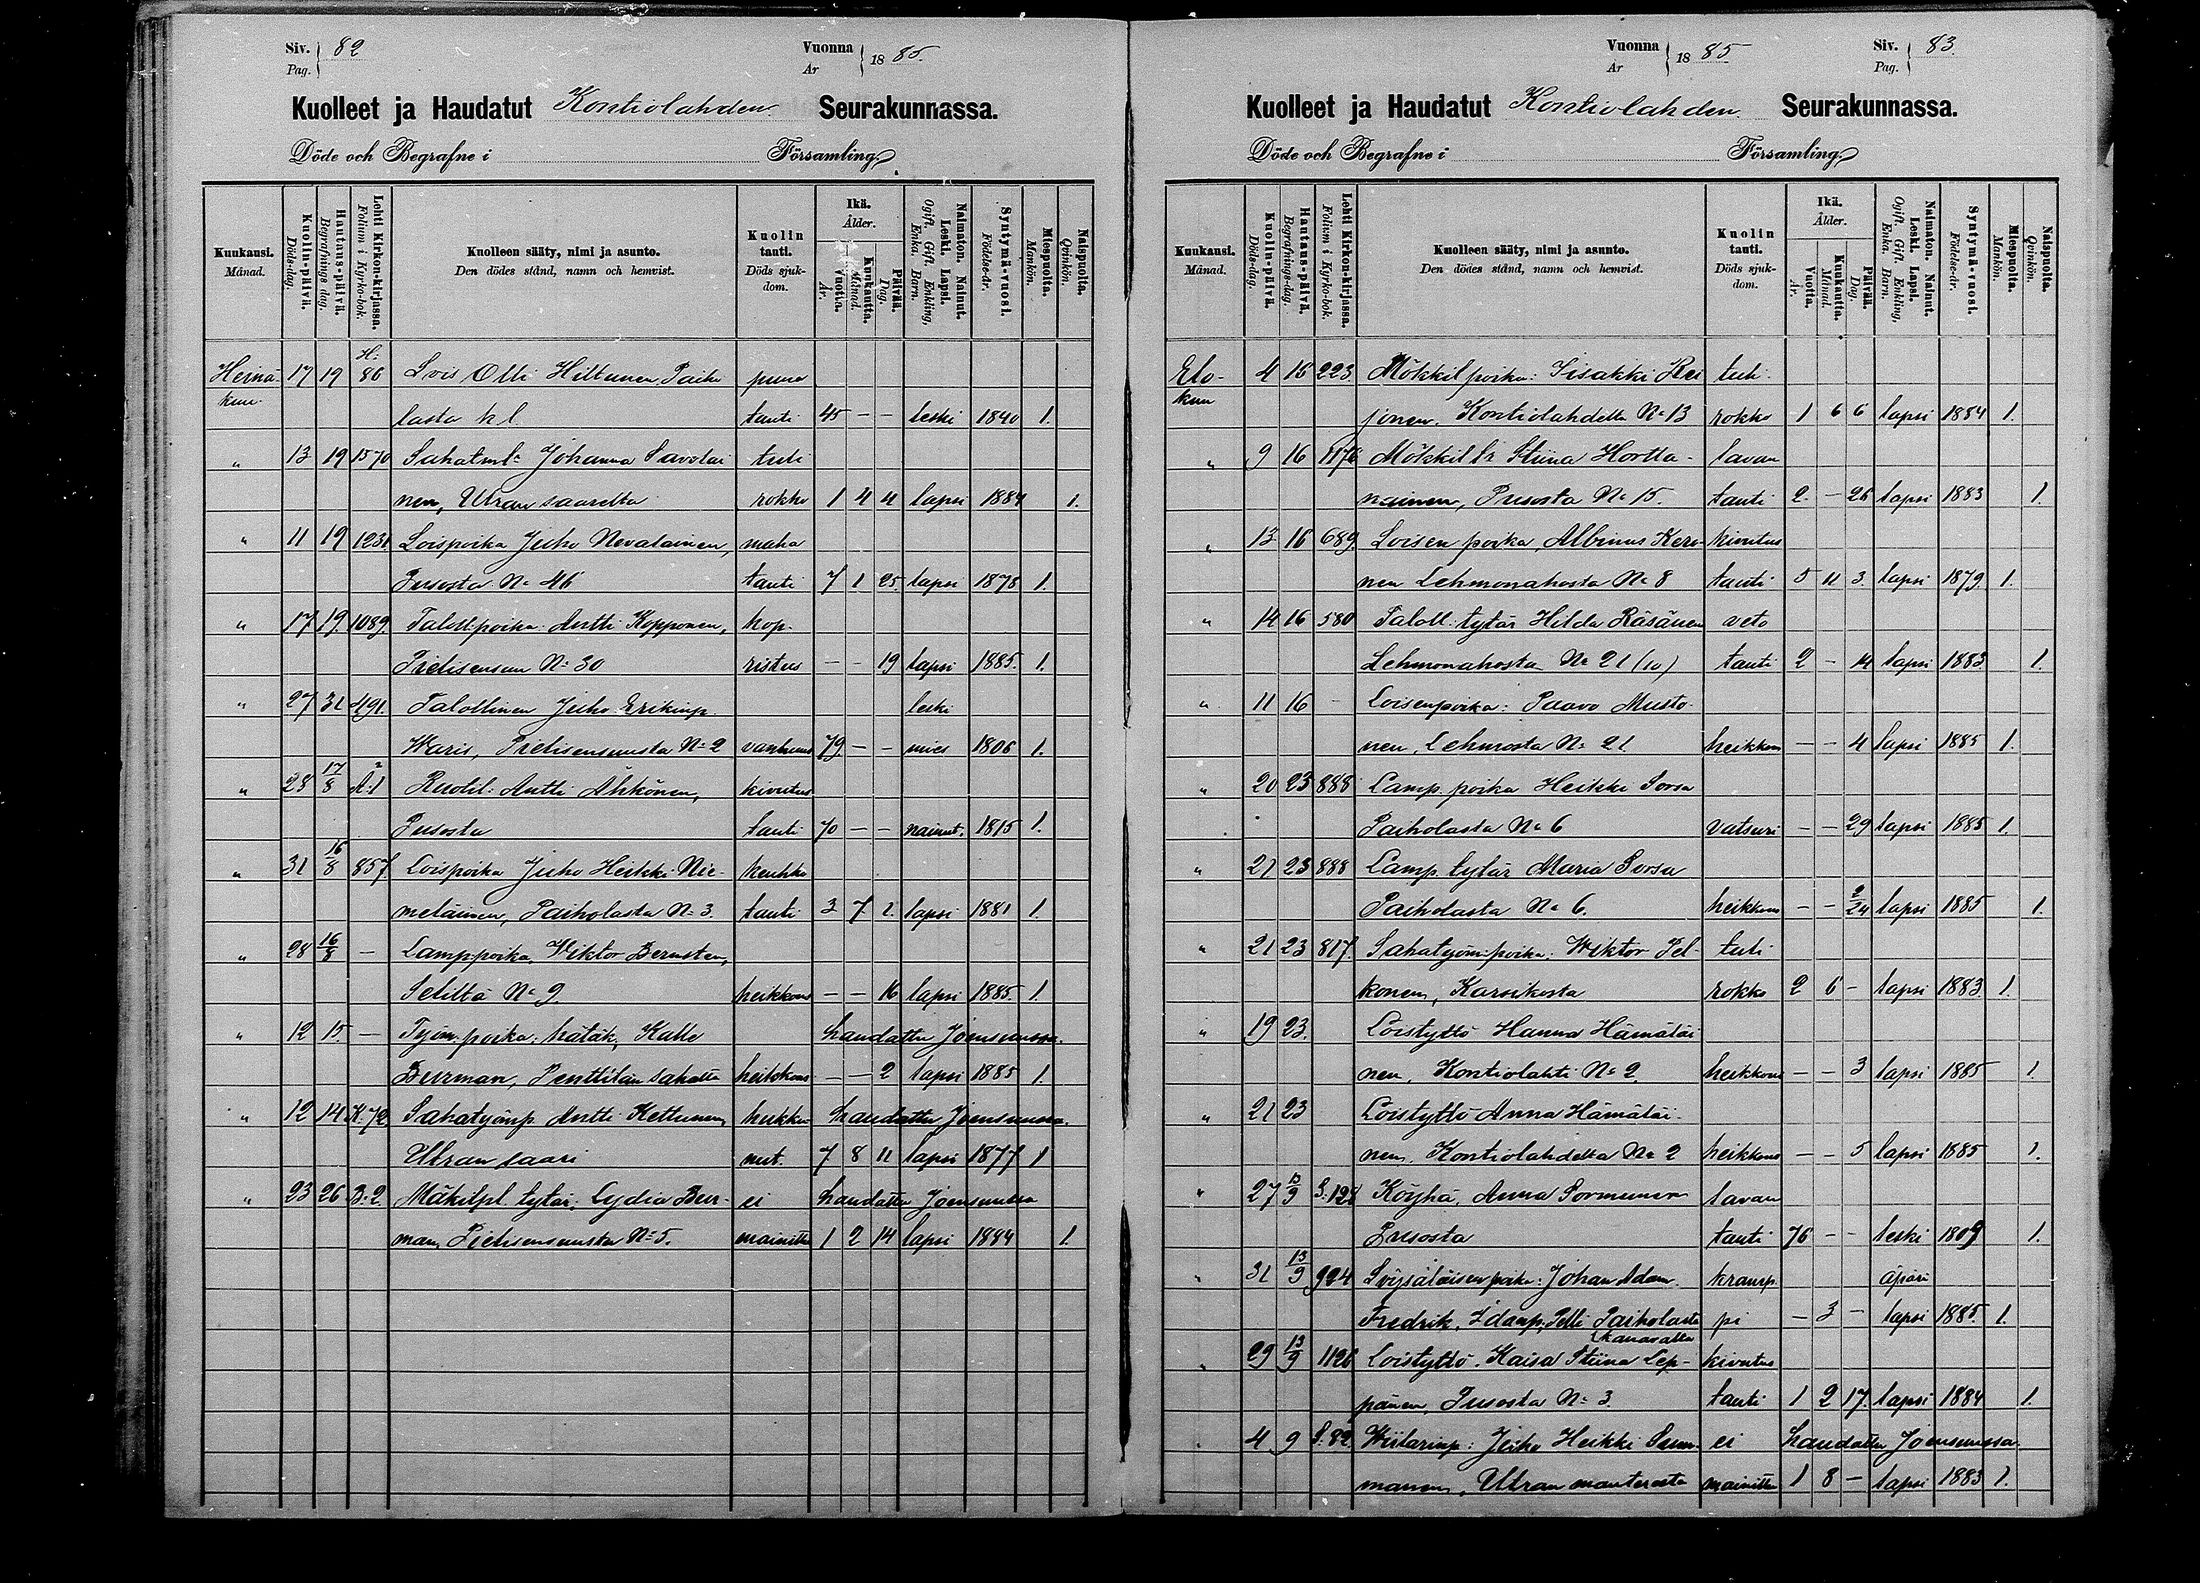 Siv. 82
Pag.
Vuonna 1885.
Ar
Kuolleet ja Haudatut Kontiolahden Seurakunnassa.
Döde och Begrafne i Församling.
Kuukausi. Månad.
Kuolin-päivä. Döds-dag.
Hautaus-päivä. Begrafnings dag.
Lehti Kirkon-kirjassa. Folium i Kyrko-bok.
Kuolleen sääty, nimi ja asunto.
Den dödes stånd, namn och hemvist.
Kuolin tauti. Döds sjukdom.
Ikä. Ålder.
Vuotta. År.
Kuukautta. Månad.
Päivää. Dag.
Naimaton. Nainut. Leski. Lapsi.
Ogift. Gift. Enkling, Enka. Barn.
Syntymä-vuosi. Födelse-år.
Miespuolta. Mankön.
Naispuolta. Qvinkön.
Heinä- 17 19 H: 86 Lois Olli Hiltunen, Paiho puna
kuu. lasta kl. tauti 45 – – leski 1840 1.
" 13 19 1570 Sahatml: Johanna Savolai tuli
nen, Utran saarelta rokko 1 4 4 lapsi 1884 1.
" 11 19 1231 Loispoika Juho Nevalainen, maha
Pusosta No 46 tauti 7 1 25. lapsi 1878 1.
" 17 19. 1089. Taloll:poika: Antti Kopponen, kop-
Pielisensuu No 30 ristus – – 19 lapsi 1885. 1.
" 27 31 491. Talollinen Juho Erikinp. leski
Waris, Pielisensuusta No 2 vanhuus 79. – – mies 1806 1.
" 28 17/8 Ä:1 Ruotil: Antti Ähkönen, kivutus
Pusosta tauti 70 – – nainut. 1815 1.
" 31 16/8 857. Loispoika Juho Heikki Nie- keuhko
meläinen, Paiholasta No 3. tauti 3 7 1. lapsi 1881 1.
" 28 16/8 – Lamp.poika, Wiktor Bernsten,
Seliltä No 9. heikkous – – 16 lapsi 1885. 1.
" 12 15. – Työm. poika: hätäk, Kalle haudattu Joensuussa.
Burman, Penttilän sahalta heikkous – – 2 lapsi 1885 1.
" 12 14 K.72 Sahatyömp. Antti Kettunen, hukku- haudattu Joensuussa.
Utran saari nut. 7 8 11 lapsi 1877 1
" 23 26 B.2. Mäkitpl. tytär: Lydia Bur- ei haudattu Joensuussa
man, Pielisensuusta No 5. mainittu 1 2 14 lapsi 1884 1.
Vuonna 1885.
Ar
Siv. 83.
Pag.
Kuolleet ja Haudatut Kontiolahden Seurakunnassa.
Döde och Begrafne i Församling.
Kuukausi. Månad.
Kuolin-päivä. Döds-dag.
Hautaus-päivä. Begrafnings-dag.
Lehti Kirkon-kirjassa. Folium i Kyrko-bok.
Kuolleen sääty, nimi ja asunto.
Den dödes stånd, namn och hemvist.
Kuolin tauti. Döds sjuk-dom.
Ikä. Ålder.
Vuotta. År.
Kuukautta. Månad.
Päivää. Dag.
Naimaton. Nainut. Leski. Lapsi.
Ogift. Gift. Enkling, Enka. Barn.
Syntymä-vuosi. Födelse-år.
Miespuolta. Mankön.
Naispuolta. Qvinkön.
Elo- 4 16 223. Mökkil poika: Iisakki Rei tuli
kuu jonen, Kontiolahdelta No 13 rokko 1 6 6 lapsi 1884 1.
" 9 16 1176 Mökkil tr Stiina Hortta- lavan
nainen, Pusosta No 15. tauti 2. – 26 lapsi 1883 1.
" 13 16 689. Loisen poika, Albinus Kero- kivutus
nen Lehmonahosta No 8 tauti 5 11 3. lapsi 1879. 1.
" 14 16 580 Taloll: tytär Hilda Räsänen veto
Lehmonahosta No 21 (10) tauti 2 – 14 lapsi 1883 1.
" 11 16 – Loisenpoika: Paavo Musto-
nen, Lehmosta No 21 heikkous – – 4 lapsi 1885 1.
" 20 23 888 Lamp. poika Heikki Sorsa
Paiholasta No 6 vatsuri – – 29 lapsi 1885 1.
" 21 23 888 Lamp. tytär Maria Sorsa
Paiholasta No 6. heikkous – – 2/24 lapsi 1885 1.
" 21 23 817. Sahatyöm:poika: Wiktor Pel- tuli
konen, Karsikosta rokko 2 6 – lapsi 1883. 1.
" 19 23. Loistyttö Hanna Hämäläi
nen, Kontiolahti No 2. heikkous – – 3 lapsi 1885 1.
" 21 23 Loistyttö Anna Hämäläi-
nen, Kontiolahdelta No 2 heikkous – – 5 lapsi 1885 1.
" 27 13/9 S.128 Köyhä, Anna Sormunen lavan
Pusosta tauti 76 – – leski 1809 1.
" 31 13/9 924 Johan Adam kramp äpärä
Fredrik, Paiholasta pi – 3 – lapsi 1885. 1.
" 29 13/9 1126 Loistyttö. Kaisa Stiina Lep- kivutus
pänen, Pusosta No 3. tauti 1 2 17. lapsi 1884 1.
4 9 S.82 Wiilarinp: Juho Heikki Suu- ei haudattu Joensuussa.
manen, Utran manteresta mainittu 1 8 – lapsi 1883 1.